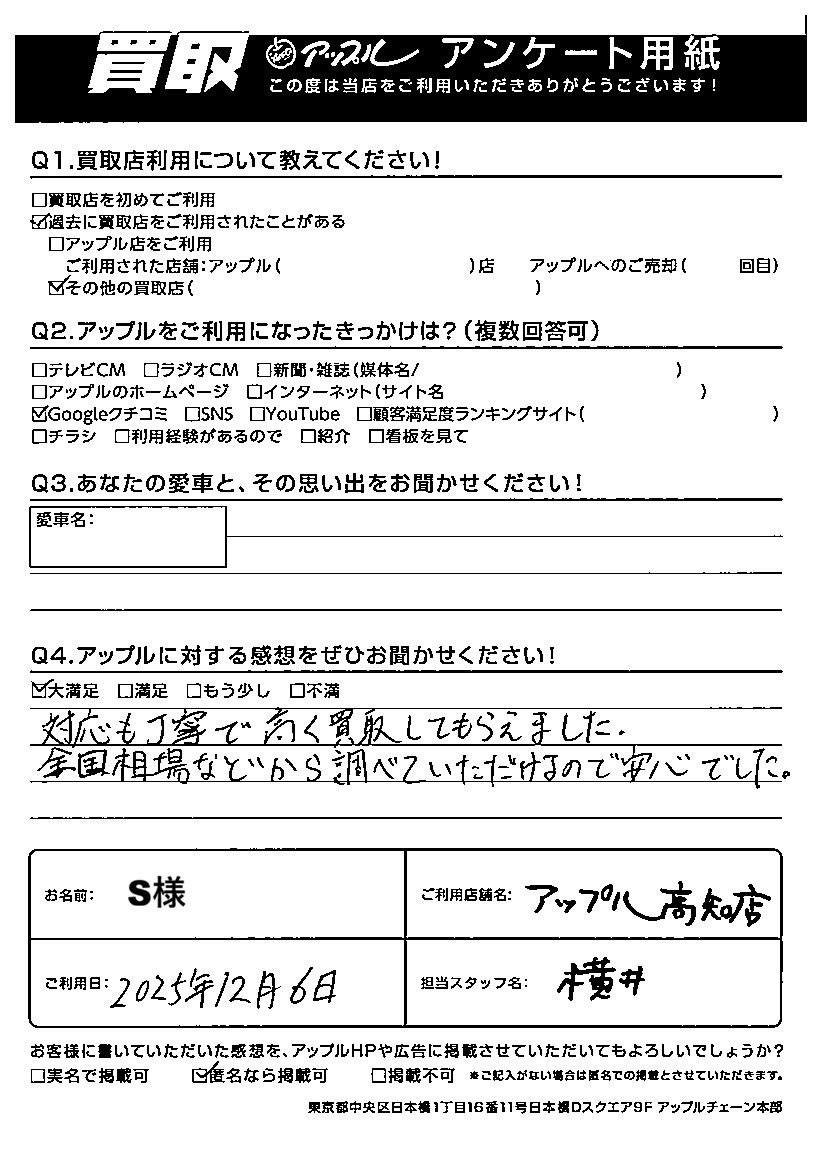 買取 アップル アンケート用紙
この度は当店をご利用いただきありがとうございます!
Q1.買取店利用について教えてください!
□買取店を初めてご利用
☑過去に買取店をご利用されたことがある
□アップル店をご利用
ご利用された店舗:アップル( )店 アップルへのご売却( 回目)
☑その他の買取店( )
Q2.アップルをご利用になったきっかけは?(複数回答可)
□テレビCM □ラジオCM □新聞・雑誌(媒体名/ )
□アップルのホームページ □インターネット(サイト名 )
☑Googleクチコミ □SNS □YouTube □顧客満足度ランキングサイト( )
□チラシ □利用経験があるので □紹介 □看板を見て
Q3.あなたの愛車と、その思い出をお聞かせください!
愛車名:
Q4.アップルに対する感想をぜひお聞かせください!
☑大満足 □満足 □もう少し □不満
対応も丁寧で高く買取してもらえました.
全国相場などから調べていただけるので安心でした。
お名前: S様 ご利用店舗名: アップル高知店
ご利用日: 2025年12月6日 担当スタッフ名: 横井
お客様に書いていただいた感想を、アップルHPや広告に掲載させていただいてもよろしいでしょうか?
□実名で掲載可 ☑匿名なら掲載可 □掲載不可 ※ご記入がない場合は匿名での掲載とさせていただきます。
東京都中央区日本橋1丁目16番11号日本橋Dスクエア9F アップルチェーン本部